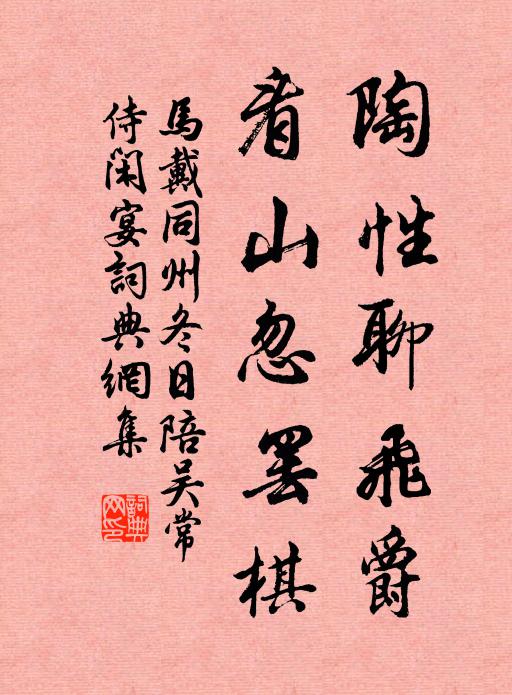 陶性聊飛爵
看山忽罷棋
馬戴同州冬日陪吳常
侍閑宴詞典網集
詞典
网印